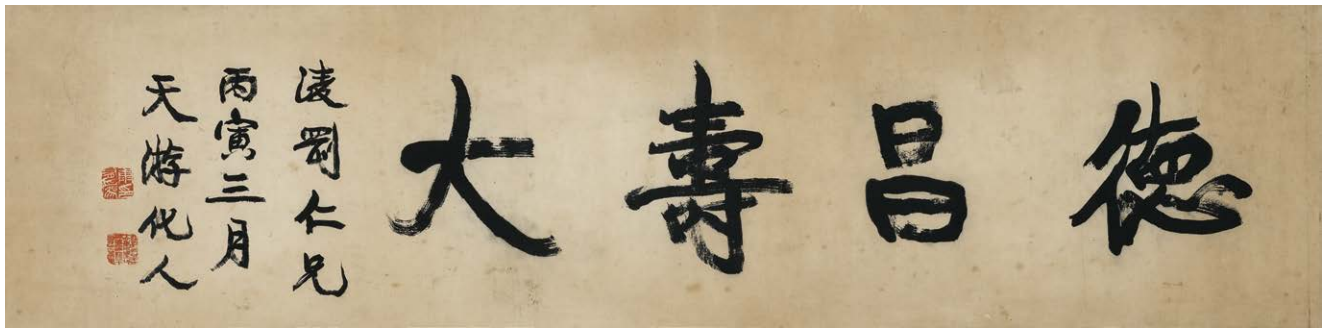 德昌壽大
凌罰仁兄
丙寅三月
天游化人